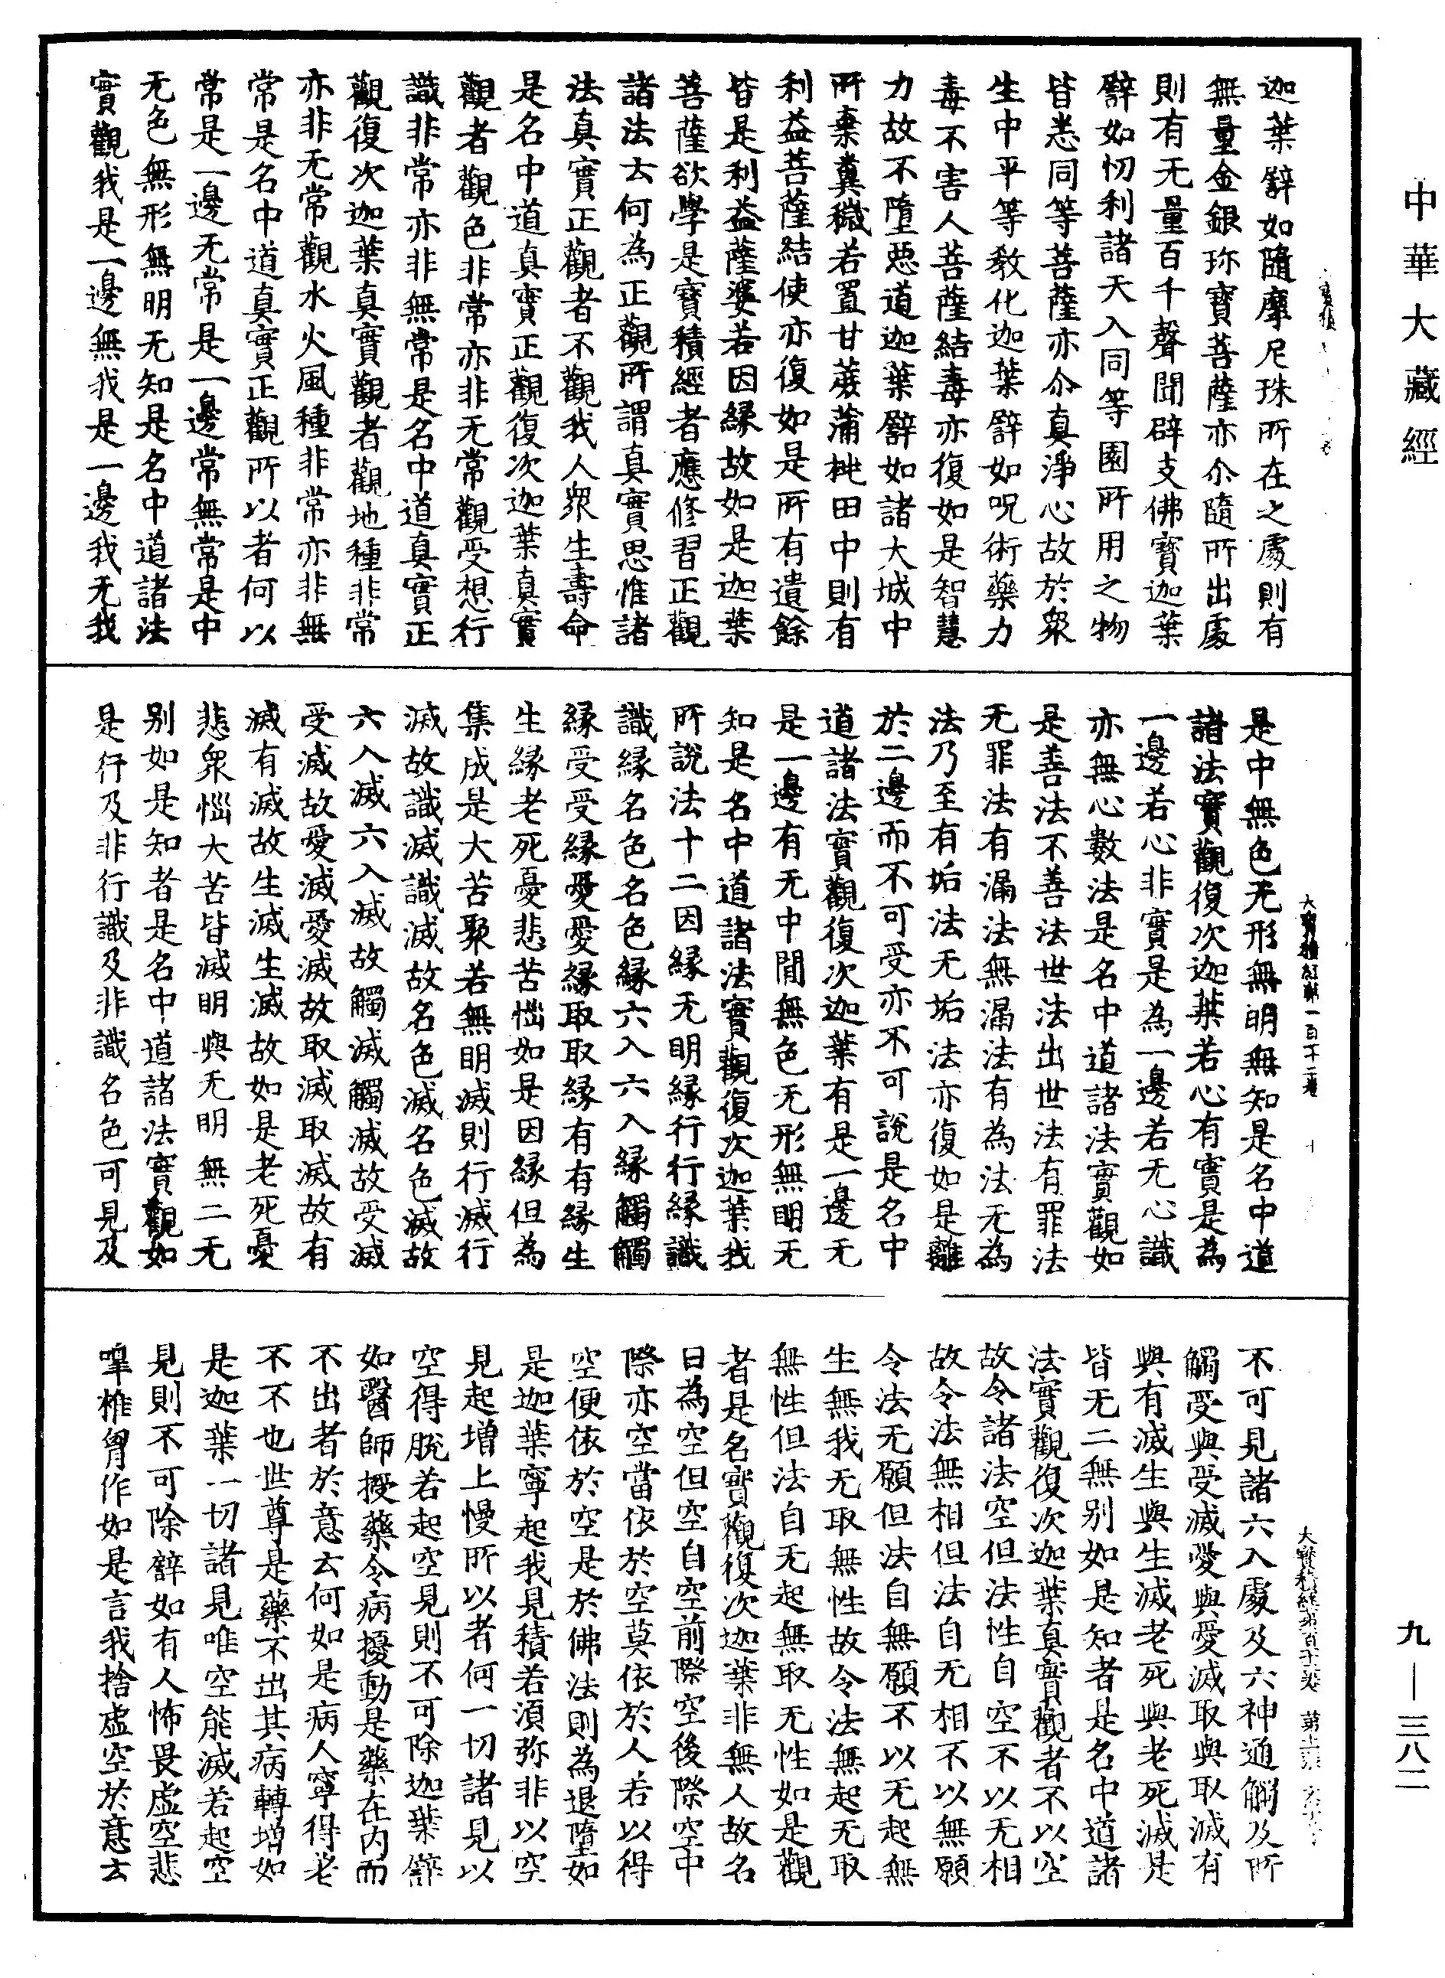 中華大藏經
迦葉譬如隨摩尼珠所在之處則有
無量金銀珎寶菩薩亦尒隨所出處
則有无量百千聲聞辟支佛寶迦葉
譬如忉利諸天入同等園所用之物
皆悉同等菩薩亦尒真淨心故於眾
生中平等教化迦葉譬如呪術藥力
毒不害人菩薩結毒亦復如是智慧
力故不墮惡道迦葉譬如諸大城中
所棄糞穢若置甘蔗蒲桃田中則有
利益菩薩結使亦復如是所有遺餘
皆是利益薩婆若因緣故如是迦葉
菩薩欲學是寶積經者應修習正觀
諸法云何為正觀所謂真實思惟諸
法真實正觀者不觀我人眾生壽命
是名中道真實正觀復次迦葉真實
觀者觀色非常亦非无常觀受想行
識非常亦非無常是名中道真實正
觀復次迦葉真實觀者觀地種非常
亦非无常觀水火風種非常亦非無
常是名中道真實正觀所以者何以
常是一邊无常是一邊常無常是中
无色無形無明无知是名中道諸法
實觀我是一邊無我是一邊我无我
是中無色无形無明無知是名中道
諸法實觀復次迦葉若心有實是為
一邊若心非實是為一邊若无心識
亦無心數法是名中道諸法實觀如
是善法不善法世法出世法有罪法
无罪法有漏法無漏法有為法无為
法乃至有垢法无垢法亦復如是離
於二邊而不可受亦不可說是名中
道諸法實觀復次迦葉有是一邊无
是一邊有无中閒無色无形無明无
知是名中道諸法實觀復次迦葉我
所說法十二因緣无明緣行行緣識
識緣名色名色緣六入六入緣觸觸
緣受受緣愛愛緣取取緣有有緣生
生緣老死憂悲苦惱如是因緣但為
集成是大苦聚若無明滅則行滅行
滅故識滅識滅故名色滅名色滅故
六入滅六入滅故觸滅觸滅故受滅
受滅故愛滅愛滅故取滅取滅故有
滅有滅故生滅生滅故如是老死憂
悲眾惱大苦皆滅明與无明無二无
別如是知者是名中道諸法實觀如
是行及非行識及非識名色可見及
大寶積經第一百十二卷
不可見諸六入處及六神通觸及所
觸受與受滅愛與愛滅取與取滅有
與有滅生與生滅老死與老死滅是
皆无二無別如是知者是名中道諸
法實觀復次迦葉真實觀者不以空
故令諸法空但法性自空不以无相
故令法無相但法自无相不以無願
令法无願但法自無願不以无起無
生無我无取無性故令法無起无取
無性但法自无起無取无性如是觀
者是名實觀復次迦葉非無人故名
曰為空但空自空前際空後際空中
際亦空當依於空莫依於人若以得
空便依於空是於佛法則為退墮如
是迦葉寧起我見積若須弥非以空
見起增上慢所以者何一切諸見以
空得脫若起空見則不可除迦葉譬
如醫師授藥令病擾動是藥在內而
不出者於意云何如是病人寧得差
不不也世尊是藥不出其病轉增如
是迦葉一切諸見唯空能滅若起空
見則不可除譬如有人怖畏虛空悲
嘷椎胷作如是言我捨虛空於意云
九—三八二